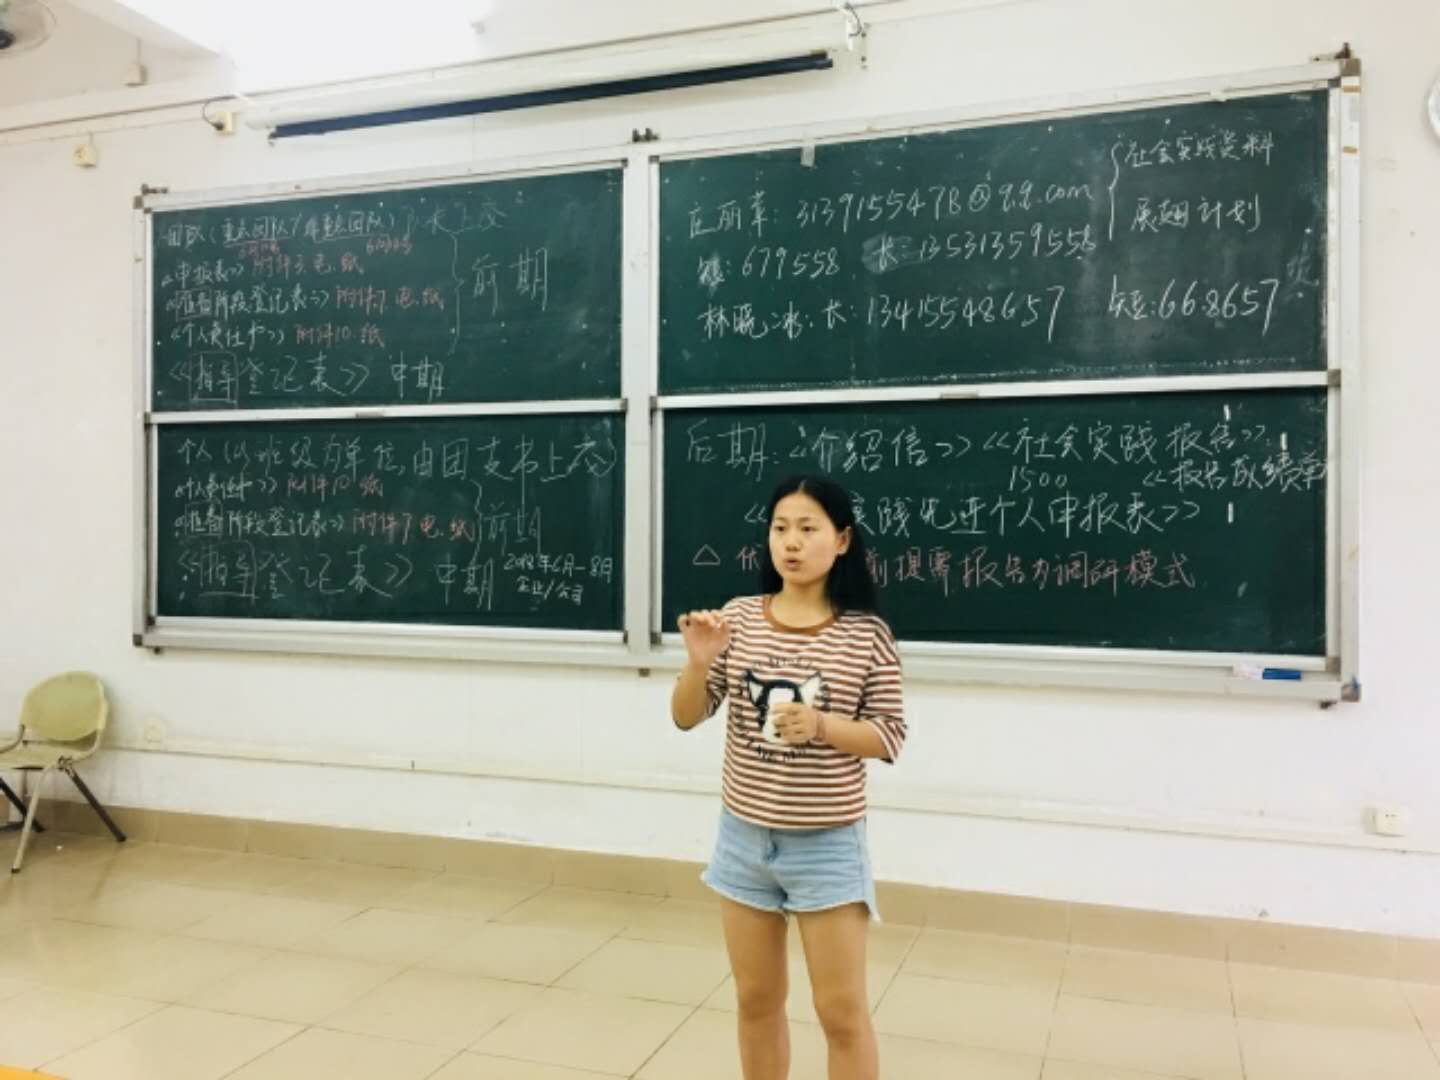 团队(重点团队/非重点团队)队长上交
《申报表》附件3.电.纸
《组织阶段登记表》附件7.电.纸
《个人责任书》附件10.纸
前期
《指导登记表》中期
个人(以班级为单位,由团支书上交)
《个人责任书》附件10.纸
阶段登记表》附件7电.纸
前期
《指导登记表》中期
2018年6月-8月
企业/公司
庄丽苹: 3139155478@qq.com
短: 679558 长: 13531359558
林晓冰: 长: 13415548657 短:668657
社会实践资料
展翅计划
后期:《介绍信》《社会实践报告》
1500 《报告成绩单》
实践先进个人申报表》
△ 优 前提需报告为调研模式